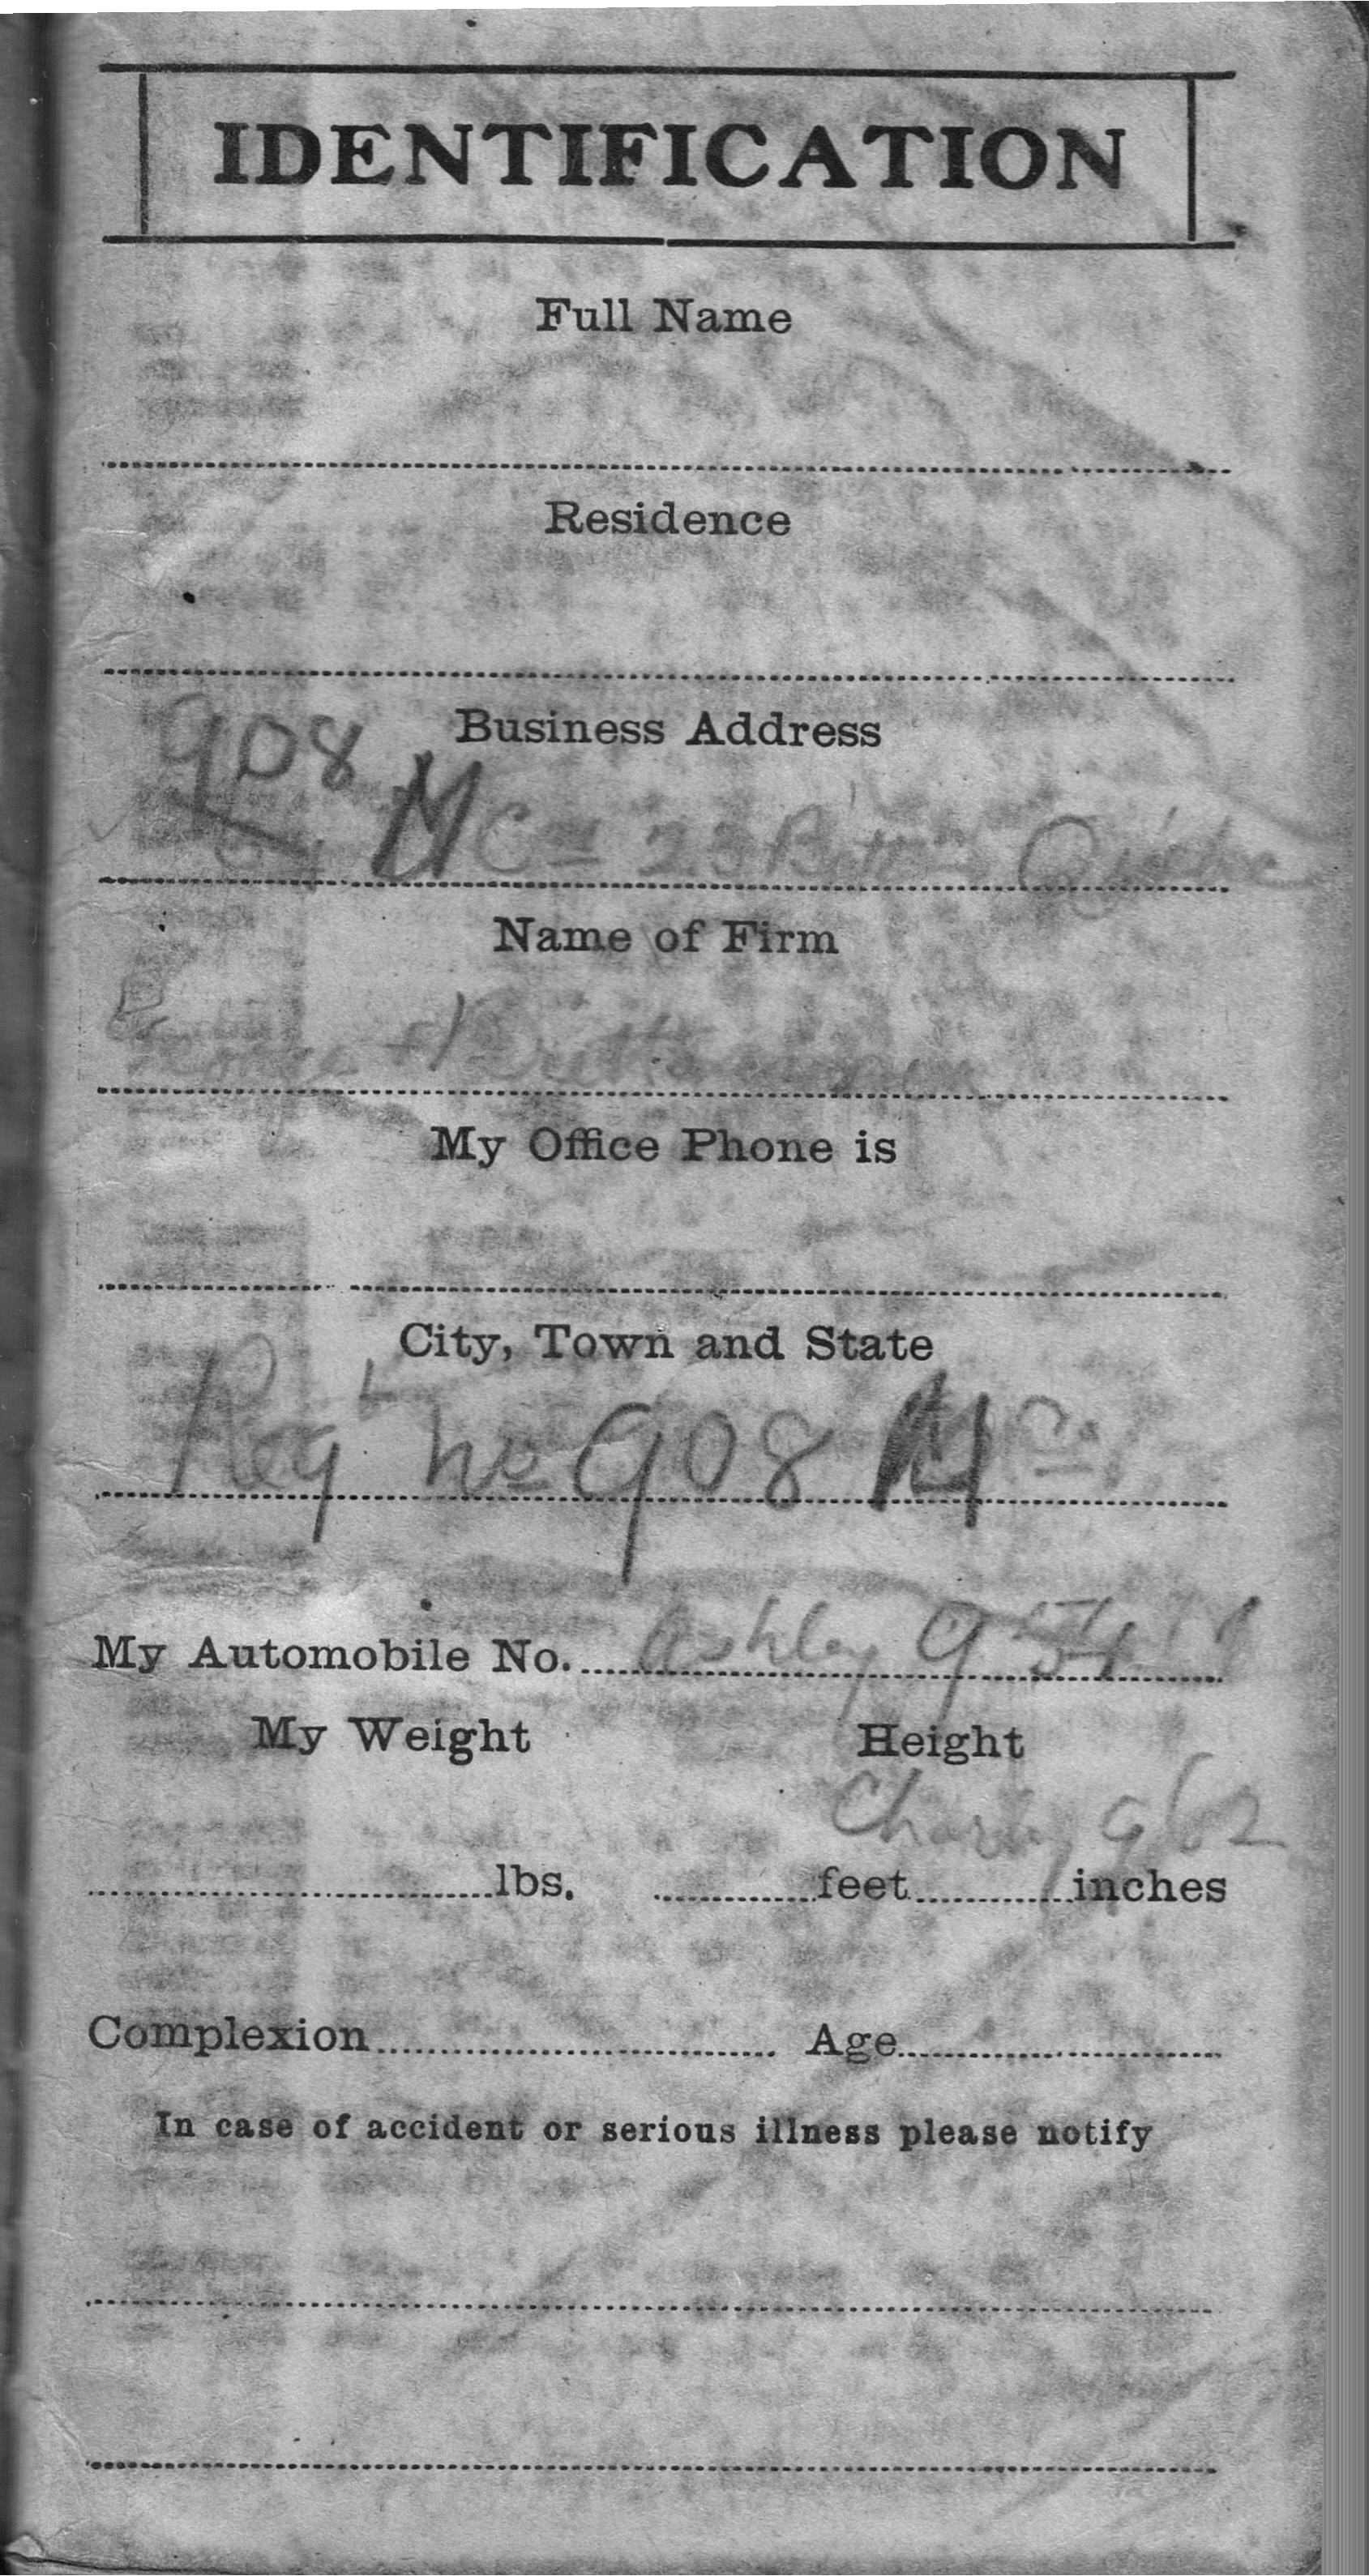 IDENTIFICATION
Full Name
Residence
Business Address
908
23 Battn
Name of Firm
My Office Phone is
City, Town and State
Regt No 908 H Co
My Automobile No. Ashley 954
My Weight Height
Charley 962
lbs. feet inches
Complexion Age
In case of accident or serious illness please notify